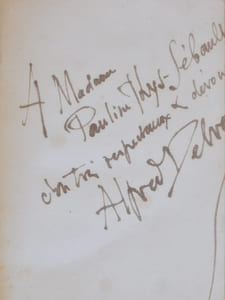 A Madame
Pauline Thys-Sébault
respectueux & dévoué
Alfred Delvau